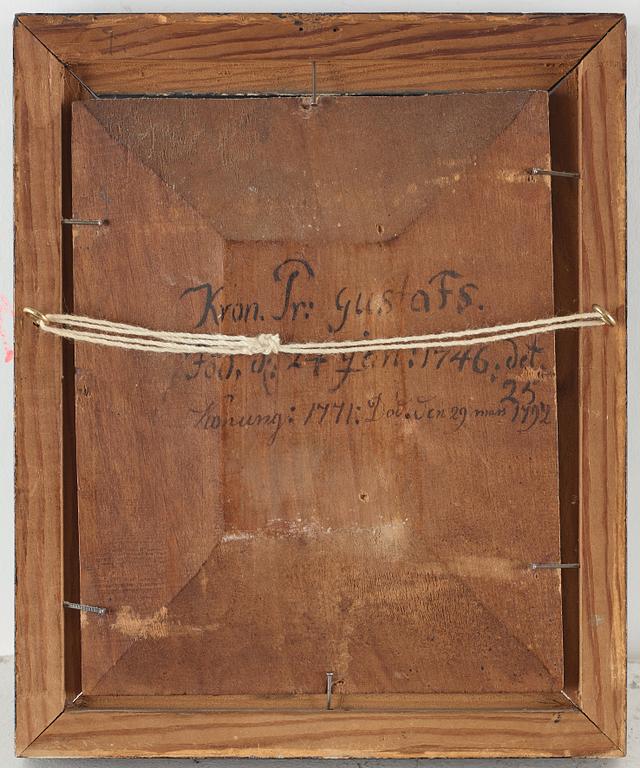 Kron. Pr: Gustafs.
Föd, d: 24 Jan: 1746. det.
25
Konung: 1771: Död. den 29 mars 1792